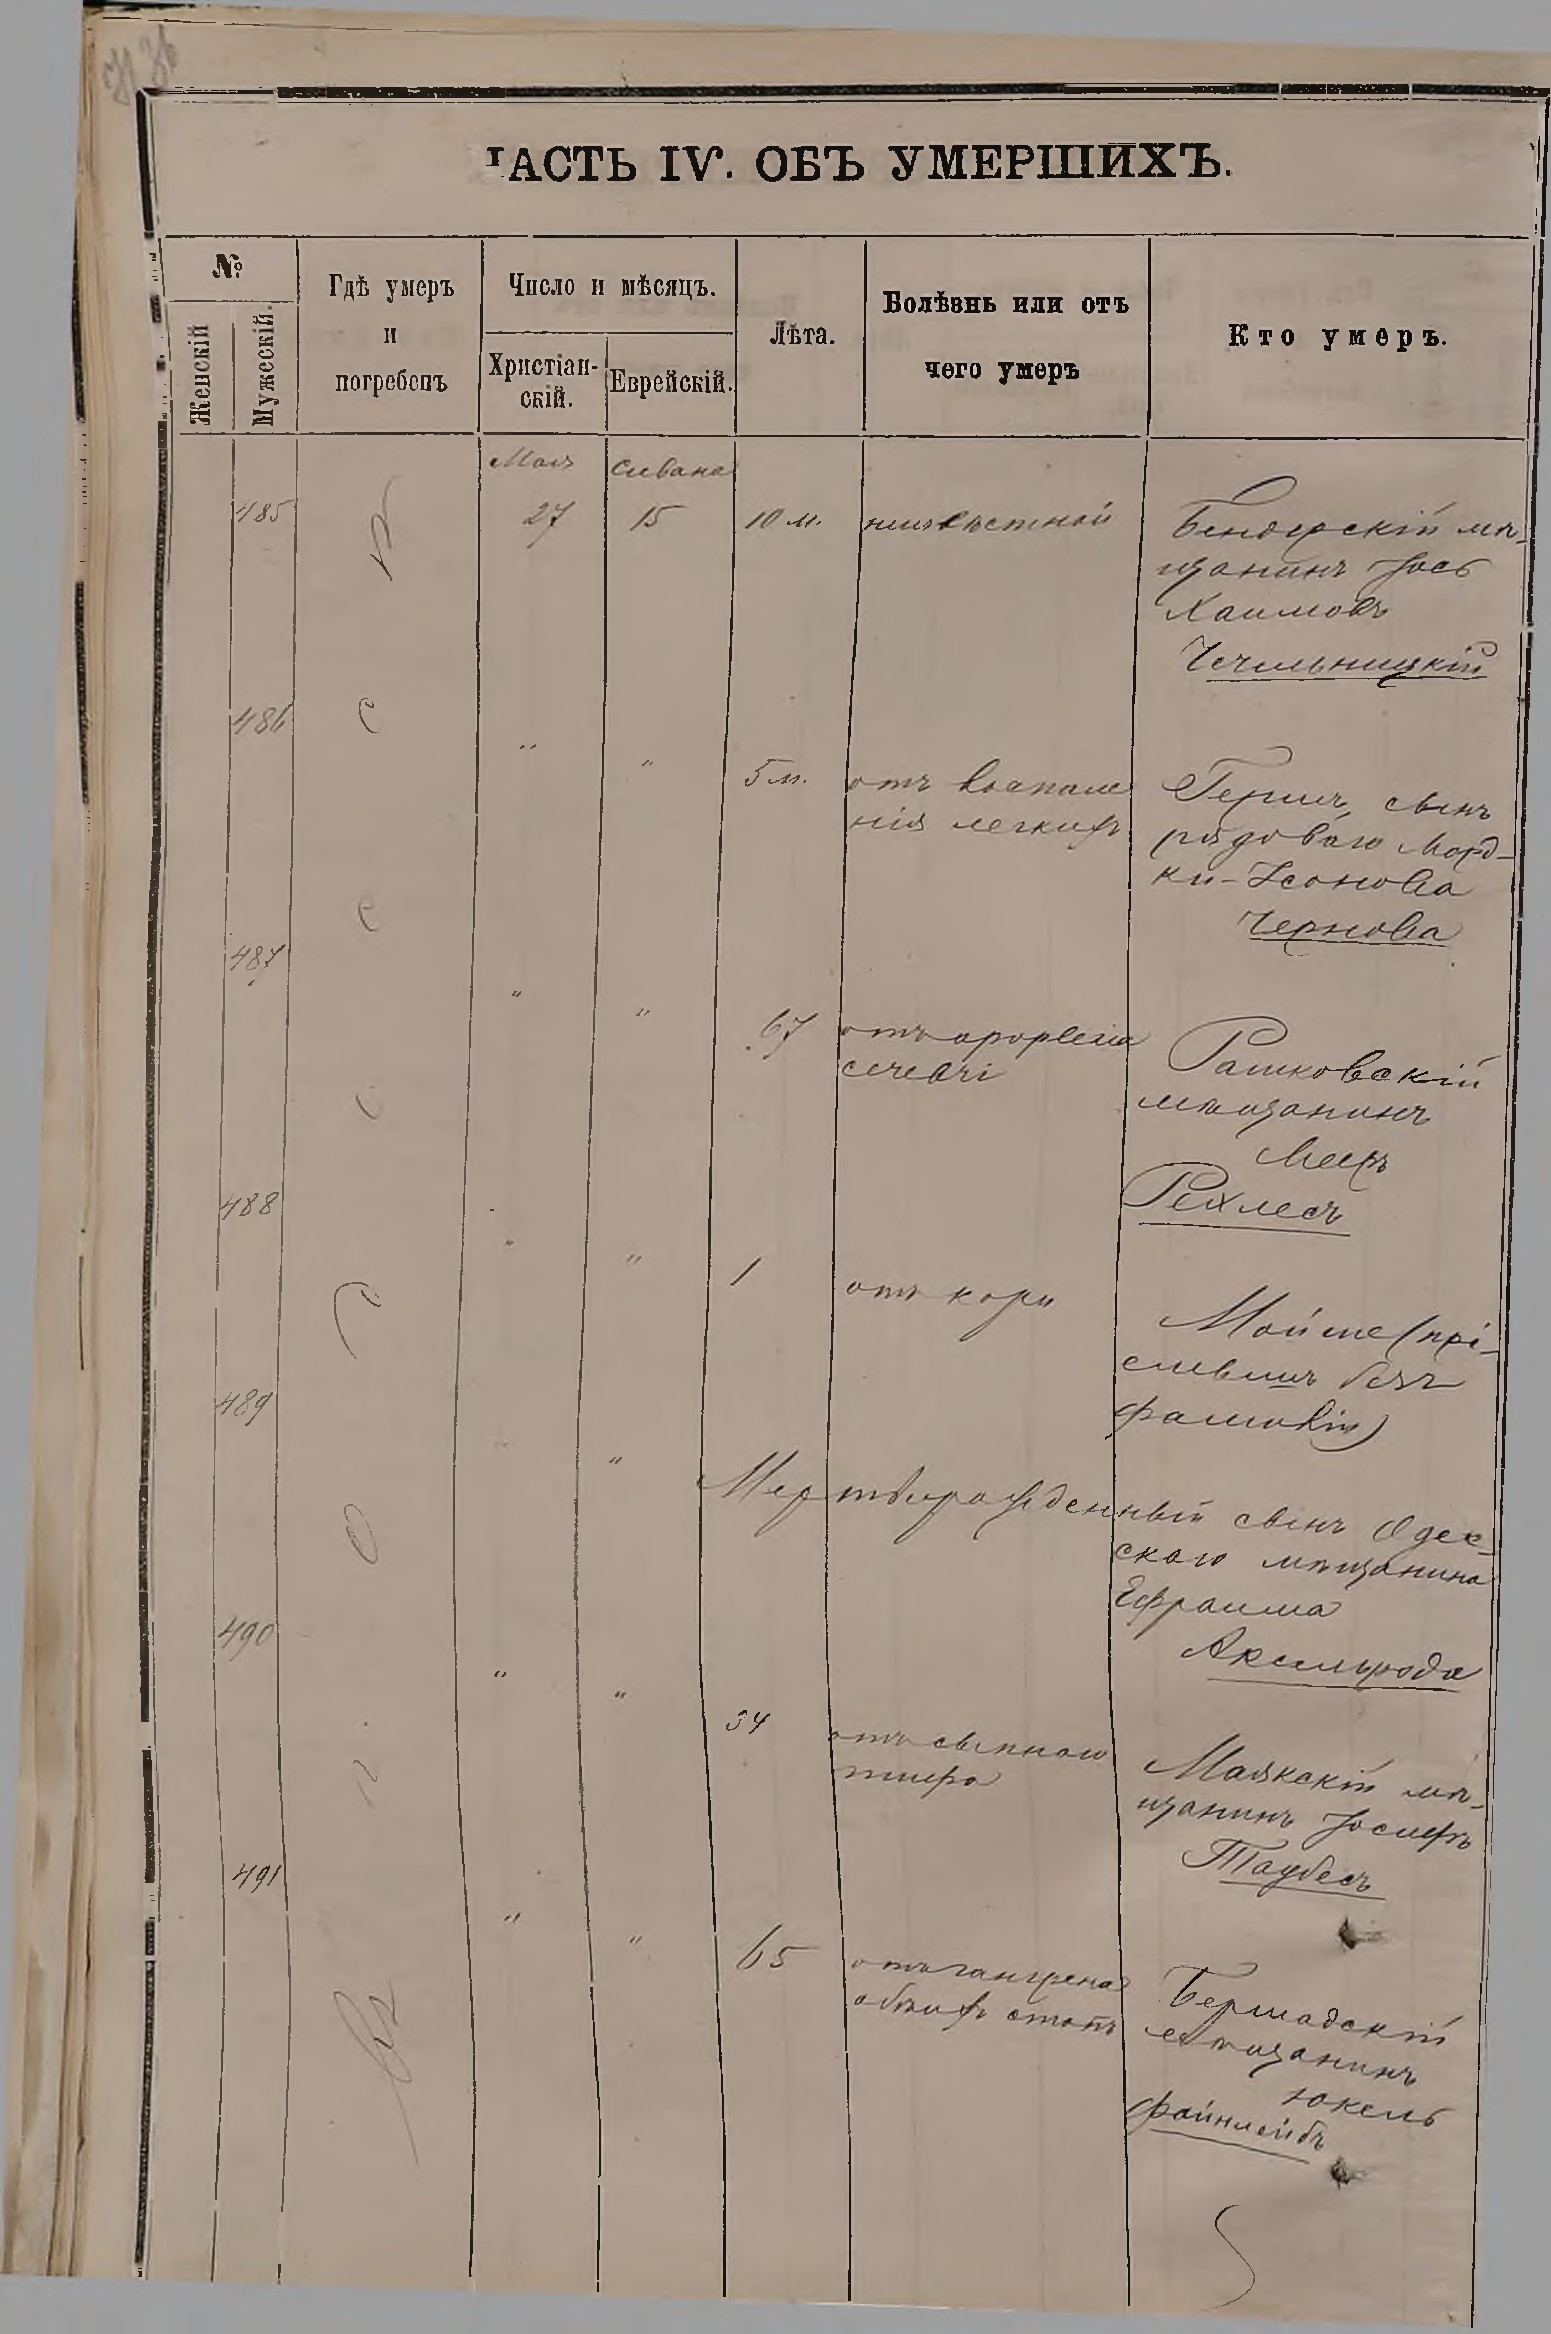 ЧАСТЬ IV. ОБЪ УМЕРШИХЪ.
№
Женскій
Мужескій.
Гдѣ умеръ
и
погребенъ
Число и мѣсяцъ.
Христіан-
скій.
Еврейскій.
Лѣта.
Болѣзнь или отъ
чего умеръ
Кто умеръ.
Мая
Сивана
485
27
15
10 м.
неизвѣстной
Бендерскій мѣ-
щанинъ Іось
Хаимовъ
Чечельницкій
486
"
"
5 м.
отъ воспале
нія легкихъ
Гершъ, сынъ
рядоваго Морд-
ки-Іонова
Чернова
487
"
"
67
отъ
Рашковскій
мѣщанинъ
Мееръ
Рехлесъ
488
"
"
1
отъ кори
Мойше (
безъ
489
"
"
Мертворожденный сынъ Одес-
скаго мѣщанина
Ефраима
Аксельрода
490
"
"
34
отъ сыпного
тифа
Маякскій мѣ-
щанинъ Іосифъ
Таубесъ
491
"
"
65
отъ гангрена
обѣихъ стопъ
Бершадскій
мѣщанинъ
Юкель
Файнлейбъ